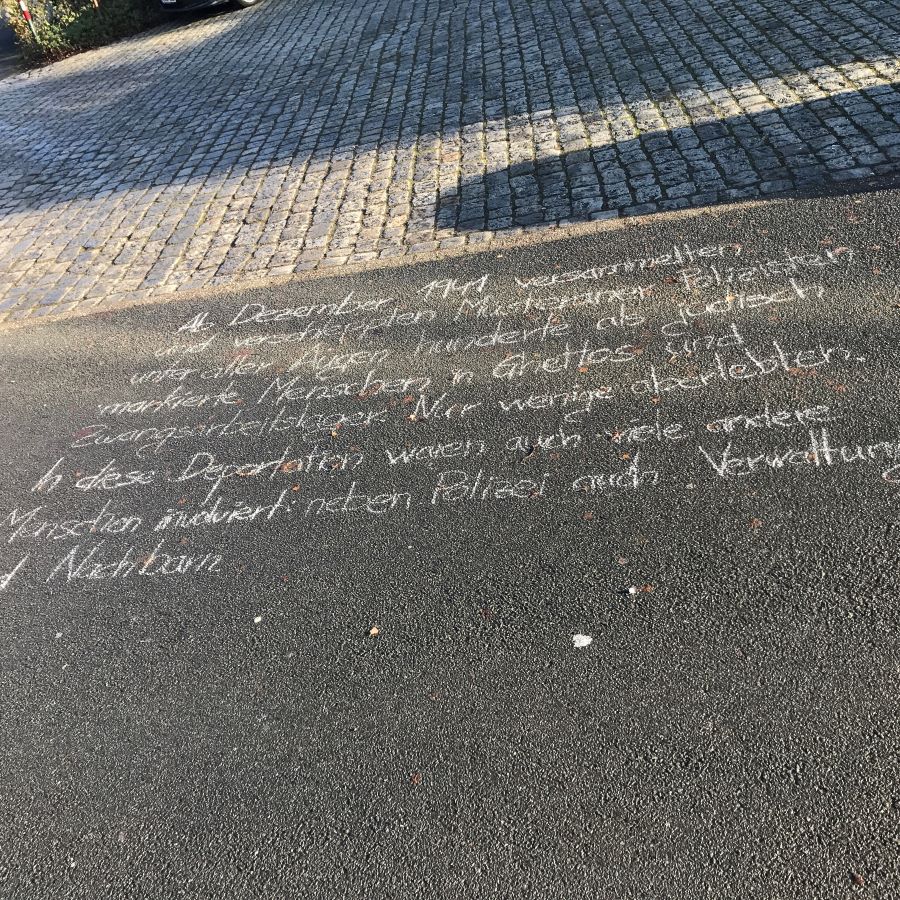 Ab Dezember 1941 versammelten
und verschleppten Münsteraner Polizisten
unser aller Augen hunderte als jüdisch
markierte Menschen in Ghettos und
Zwangsarbeitslager. Nur wenige überlebten.
In diese Deportation waren auch viele andere
Menschen involviert: neben Polizei auch Verwaltung
Nachbarn